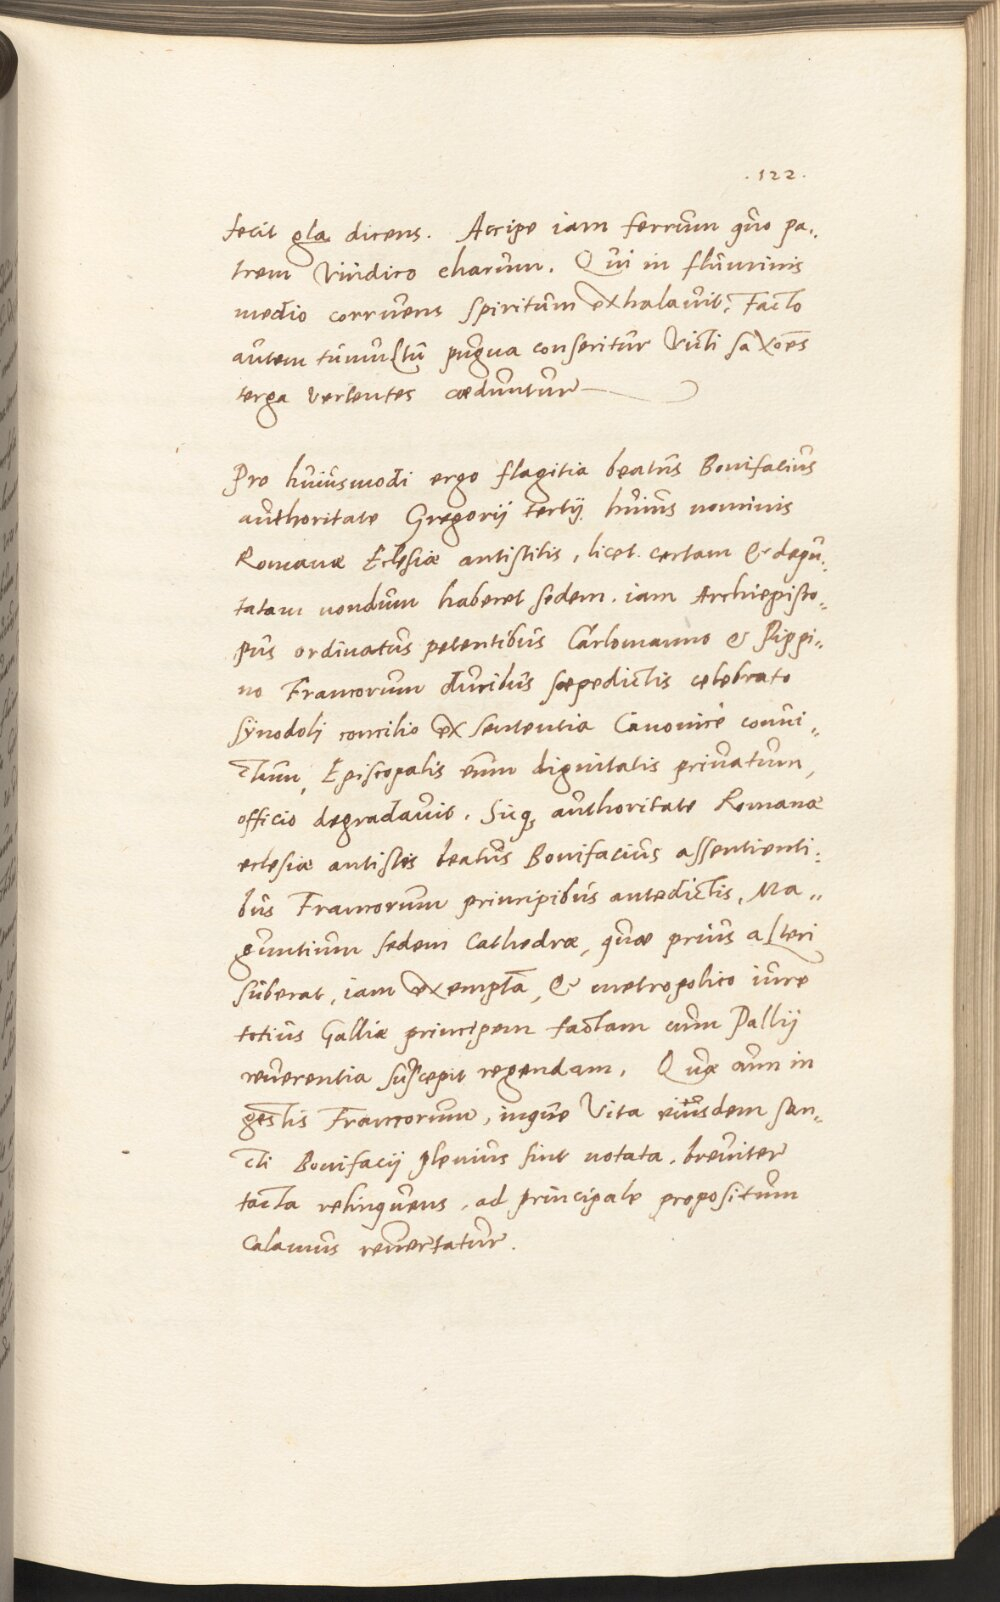 .122.
fecit gla dicens. Accipe iam ferrum quo pa„
trem vindico charum. Qui in fluminis
medio corruens spiritum exhalavit; Facto
autem tumultu pugna conseritur victi saxões
terga vertentes cæduntur
Pro huiusmodi ergo flagitia beatus Bonifacius
authoritate Gregorij tertij huius nominis
Romanæ Eclesiæ antistitis, licet certam & depu„
tatam nondum haberet sedem. iam Archiepisco„
pus ordinatus petentibus Carlomanno & Pippi„
no Francorum ducibus sæpedictis celebrato
synodoli concilio ex sententia Canonice convi„
ctum, Episcopalis eum dignitatis privatum,
officio degradavit. Sicq3 authoritate Romanæ
eclesiæ antistis beatus Bonifacius assentienti„
bus Francorum principibus antedictis, Ma„
guntium sedem Cathedræ, quæ prius alteri
suberat, iam exempta, & metropolico iure
totius Galliæ principem factam cum Pallij
reverentia suscepit regendam. Quæ cum in
gestis Francorum, inque vita eiusdem san„
cti Bonifacij plenius sint notata, breviter
tacta relinquens, ad principale propositum
calamus revertatur.